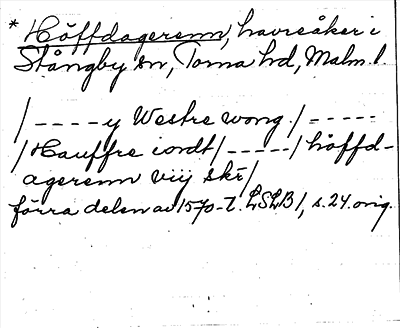 * Höffdagerenn, havreåker i
Stångby sn, Torna hd, Malm. l.
/ ---- y Westre wong. / -----
/ Hauffre iordt / ----- / höffd-
agerenn viij skē /
förra delen av 1570-t. LSLB 1, s. 24. orig.